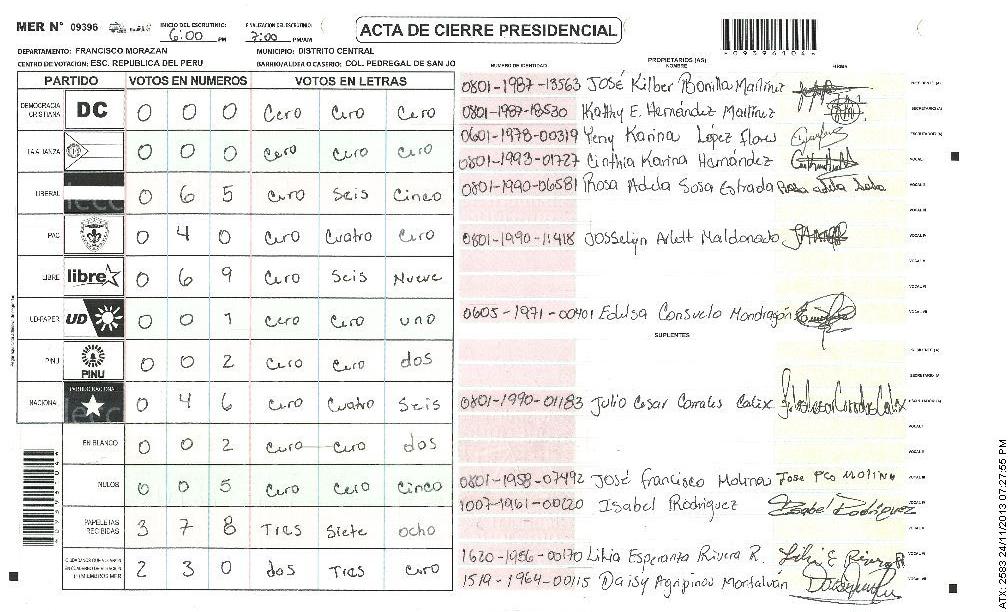 MER N° 09396
INICIO DEL ESCRUTINIO: 6:00 PM
FINALIZACION DEL ESCRUTINIO: 7:00 PM/AM
ACTA DE CIERRE PRESIDENCIAL
DEPARTAMENTO: FRANCISCO MORAZAN
MUNICIPIO: DISTRITO CENTRAL
CENTRO DE VOTACION: ESC. REPUBLICA DEL PERU
BARRIO/ALDEA O CASERIO: COL. PEDREGAL DE SAN JO
PARTIDO VOTOS EN NUMEROS VOTOS EN LETRAS
DEMOCRACIA CRISTIANA DC 0 0 0 Cero Cero Cero
LA ALIANZA 0 0 0 Cero Cero Cero
LIBERAL 0 6 5 Cero Seis Cinco
PAC 0 4 0 Cero Cuatro Cero
LIBRE libre 0 6 9 Cero Seis Nueve
UD-FAPER UD 0 0 1 Cero Cero uno
PINU PINU 0 0 2 Cero Cero dos
NACIONAL PARTIDO NACIONAL 0 4 6 Cero Cuatro Seis
EN BLANCO 0 0 2 Cero Cero dos
NULOS 0 0 5 Cero Cero Cinco
PAPELETAS RECIBIDAS 3 7 8 Tres Siete ocho
2 3 0 dos Tres Cero
NUMERO DE IDENTIDAD PROPIETARIOS (AS) NOMBRE FIRMA
0801-1987-13563 José Kilber Bonilla Martinez
0801-1987-18530 Kathy E. Hernández Martínez
0601-1978-00319 Yeny Karina López Flores
0801-1993-01727 Cinthia Karina Hernández
0801-1990-06581 Rosa Adela Sosa Estrada
0801-1990-11418 Josselyn Arlett Maldonado
0605-1971-00401 Edilsa Consuelo Mondragón
SUPLENTES
0801-1990-01183 Julio Cesar Corrales Calix
0801-1958-07492 José Francisco Molina Jose Fco Molina
1007-1961-00220 Isabel Rodriguez Isabel Rodríguez
1620-1956-00170 Lilia Esperanza Rivera R. Lilia E Rivera R
1519-1964-00115 Daisy Agripina Montalván
ATX-2583 24/11/2013 07:27:55 PM